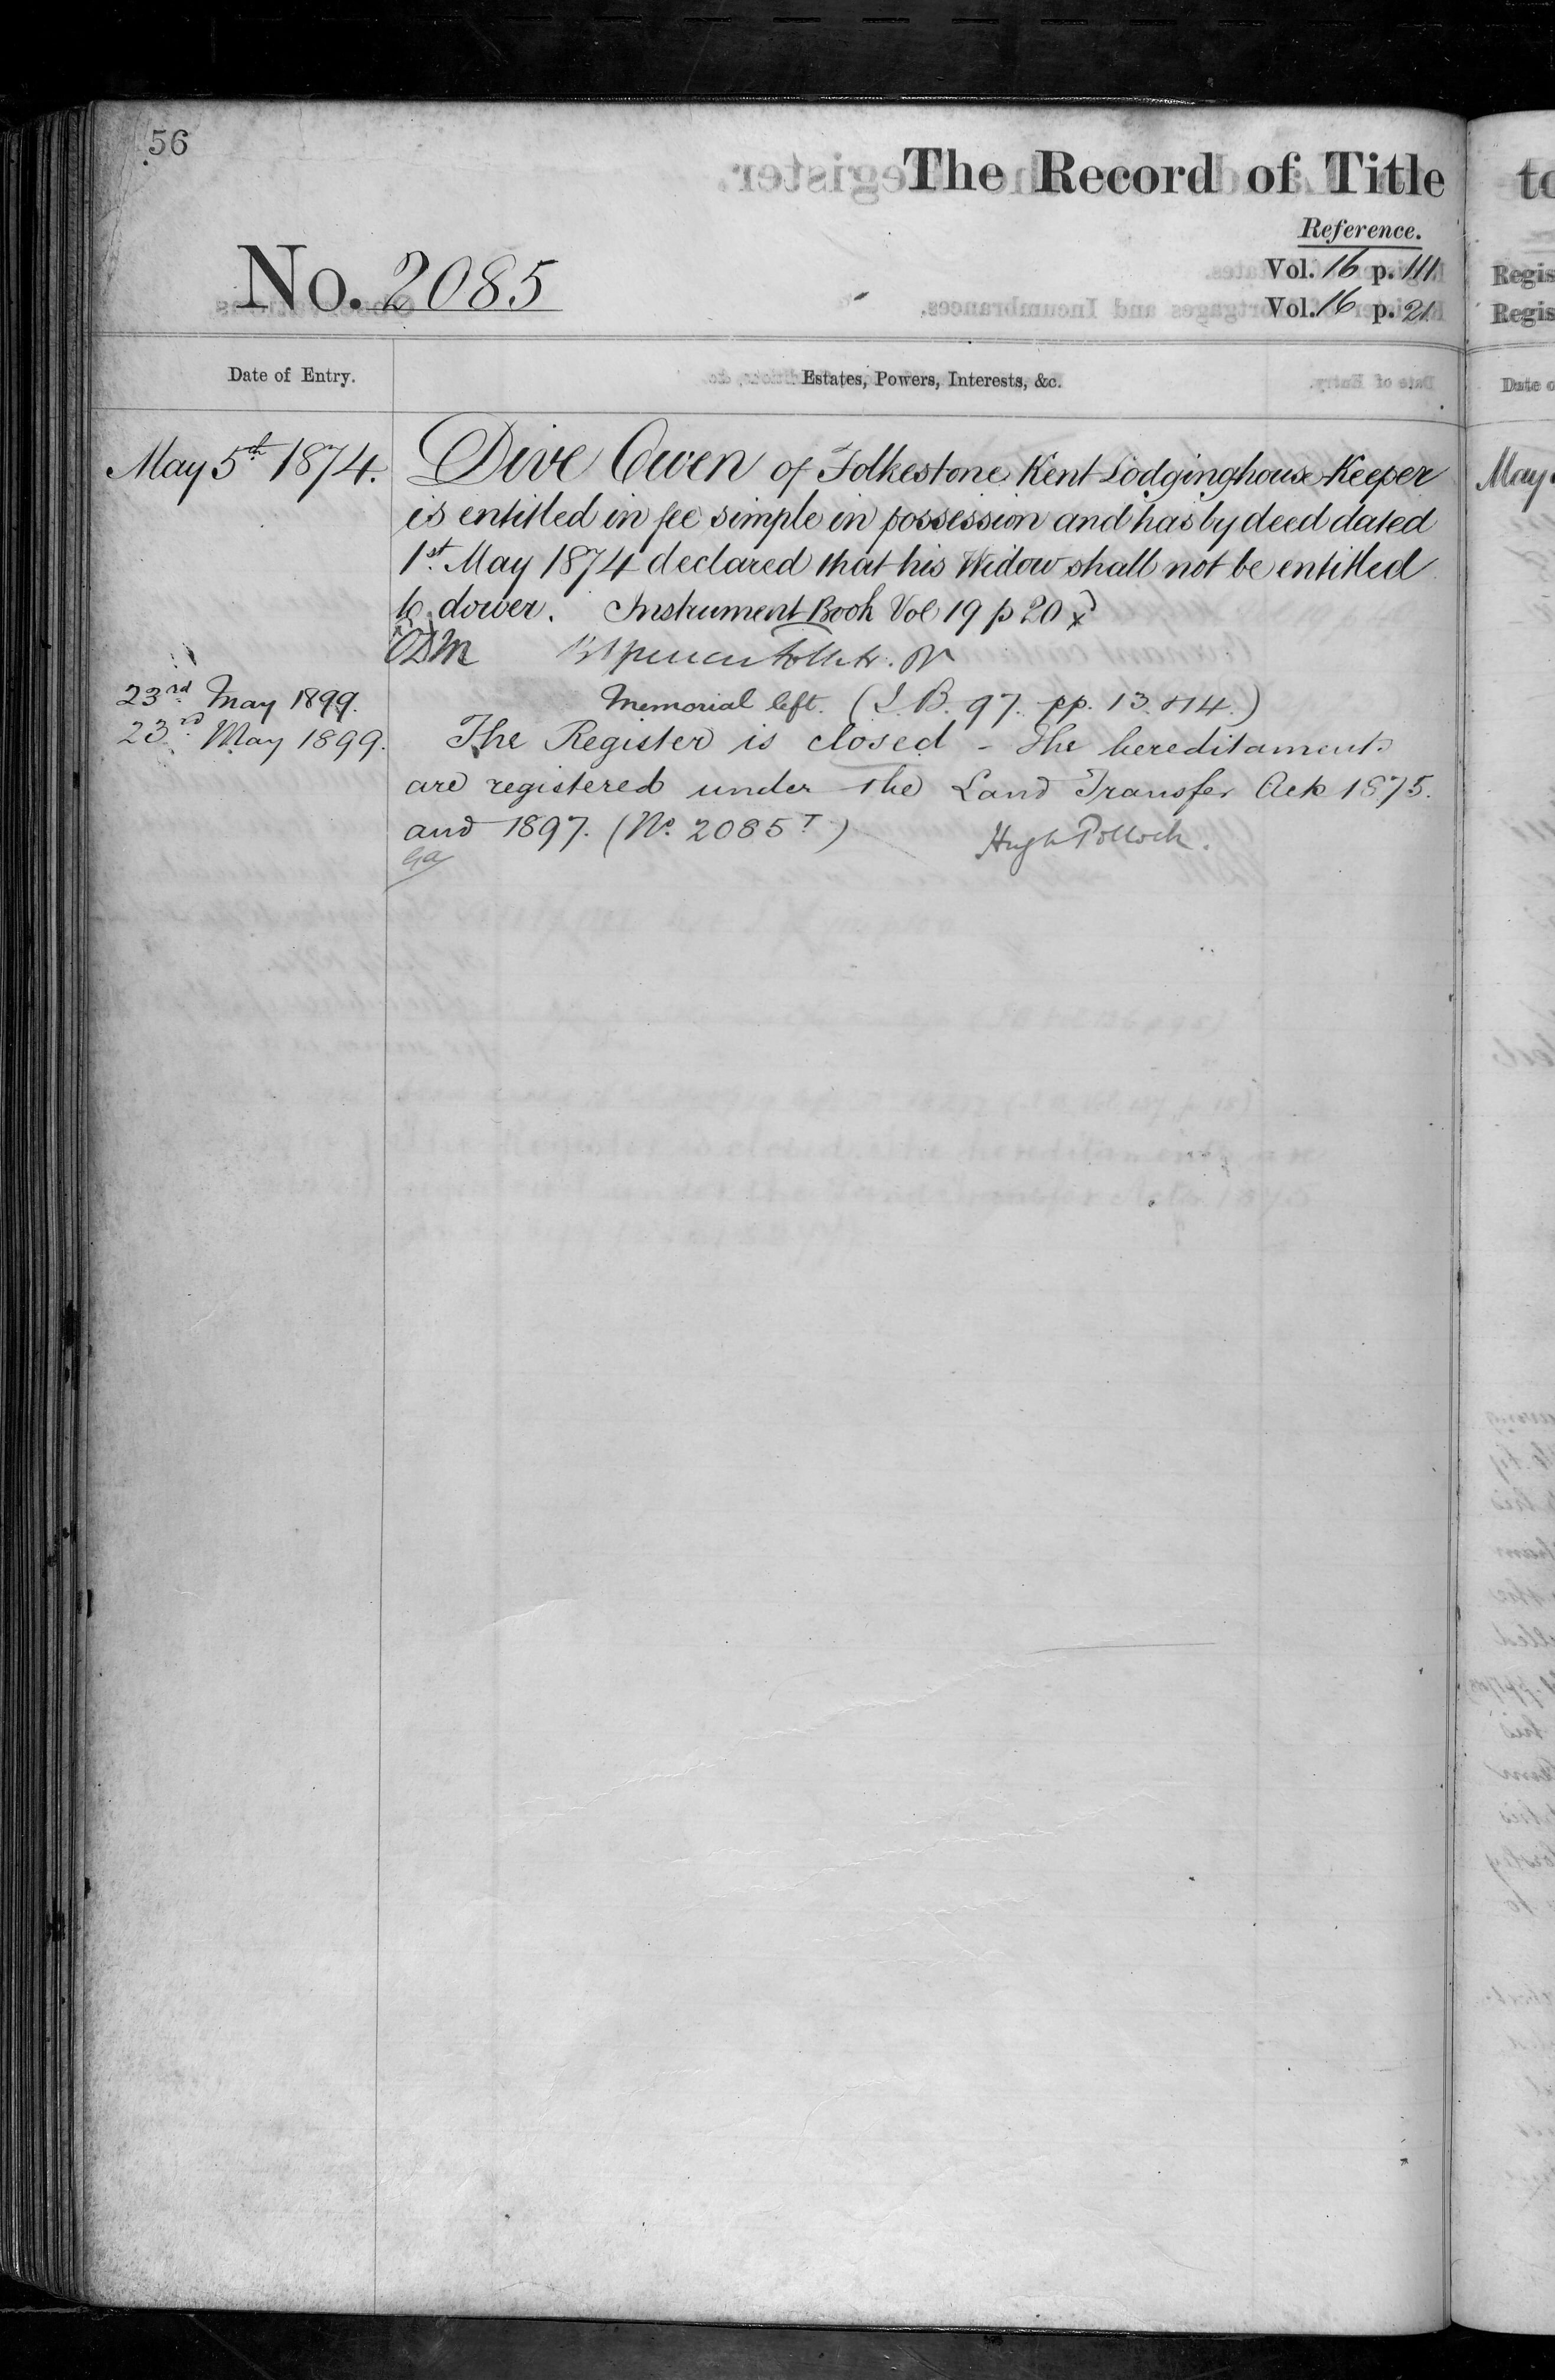 56
The Record of Title
Reference.
No. 2085
Vol. 16 p. 111
Vol. 16 p. 21
Date of Entry.
Estates, Powers, Interests, &c.
May 5th 1874.
Dive Owen of Folkestone Kent Lodginghouse Keeper
is entitled in fee simple in possession and has by deed dated
1st. May 1874 declared that his Widow shall not be entitled
to dower. Instrument Book Vol 19 p 20
23rd May 1899.
Memorial left. (I. B. 97. pp. 13 & 14.)
23rd May 1899.
The Register is closed - The hereditaments
are registered under the Land Transfer Acts 1875.
and 1897. (No. 2085 T)
Hugh Pollock.
to
Regis
Regis
Date o
May